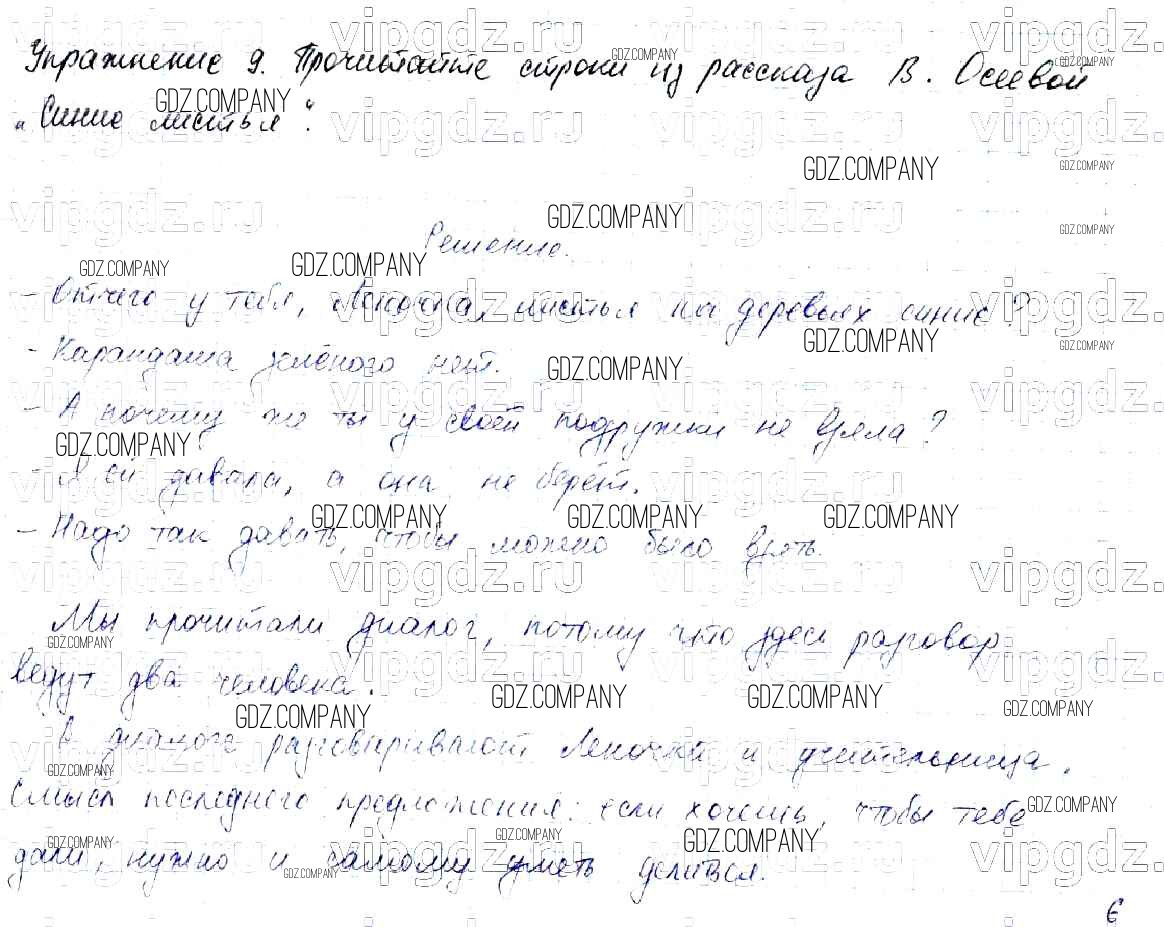 Упражнение 9. Прочитайте строки из рассказа В. Осеевой
„Синие листья“.
Решение.
- Отчего у тебя, Леночка, листья на деревьях синие?
- Карандаша зелёного нет.
- А почему же ты у своей подружки не взяла?
- Я ей давала, а она не берёт.
- Надо так давать, чтобы можно было взять.
Мы прочитали диалог, потому что здесь разговор
ведут два человека.
В диалоге разговаривают Леночка и учительница.
Смысл последнего предложения: если хочешь, чтобы тебе
дали, нужно и самому уметь делится.
6
vipgdz.ru
GDZ.COMPANY